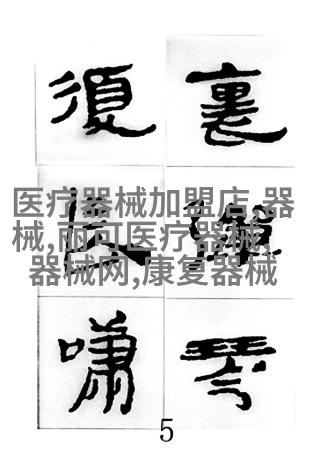 裏彈琴
復長嘯
医疗器械加盟店,器
械,丽可医疗器械,
器械网,康复器械
5